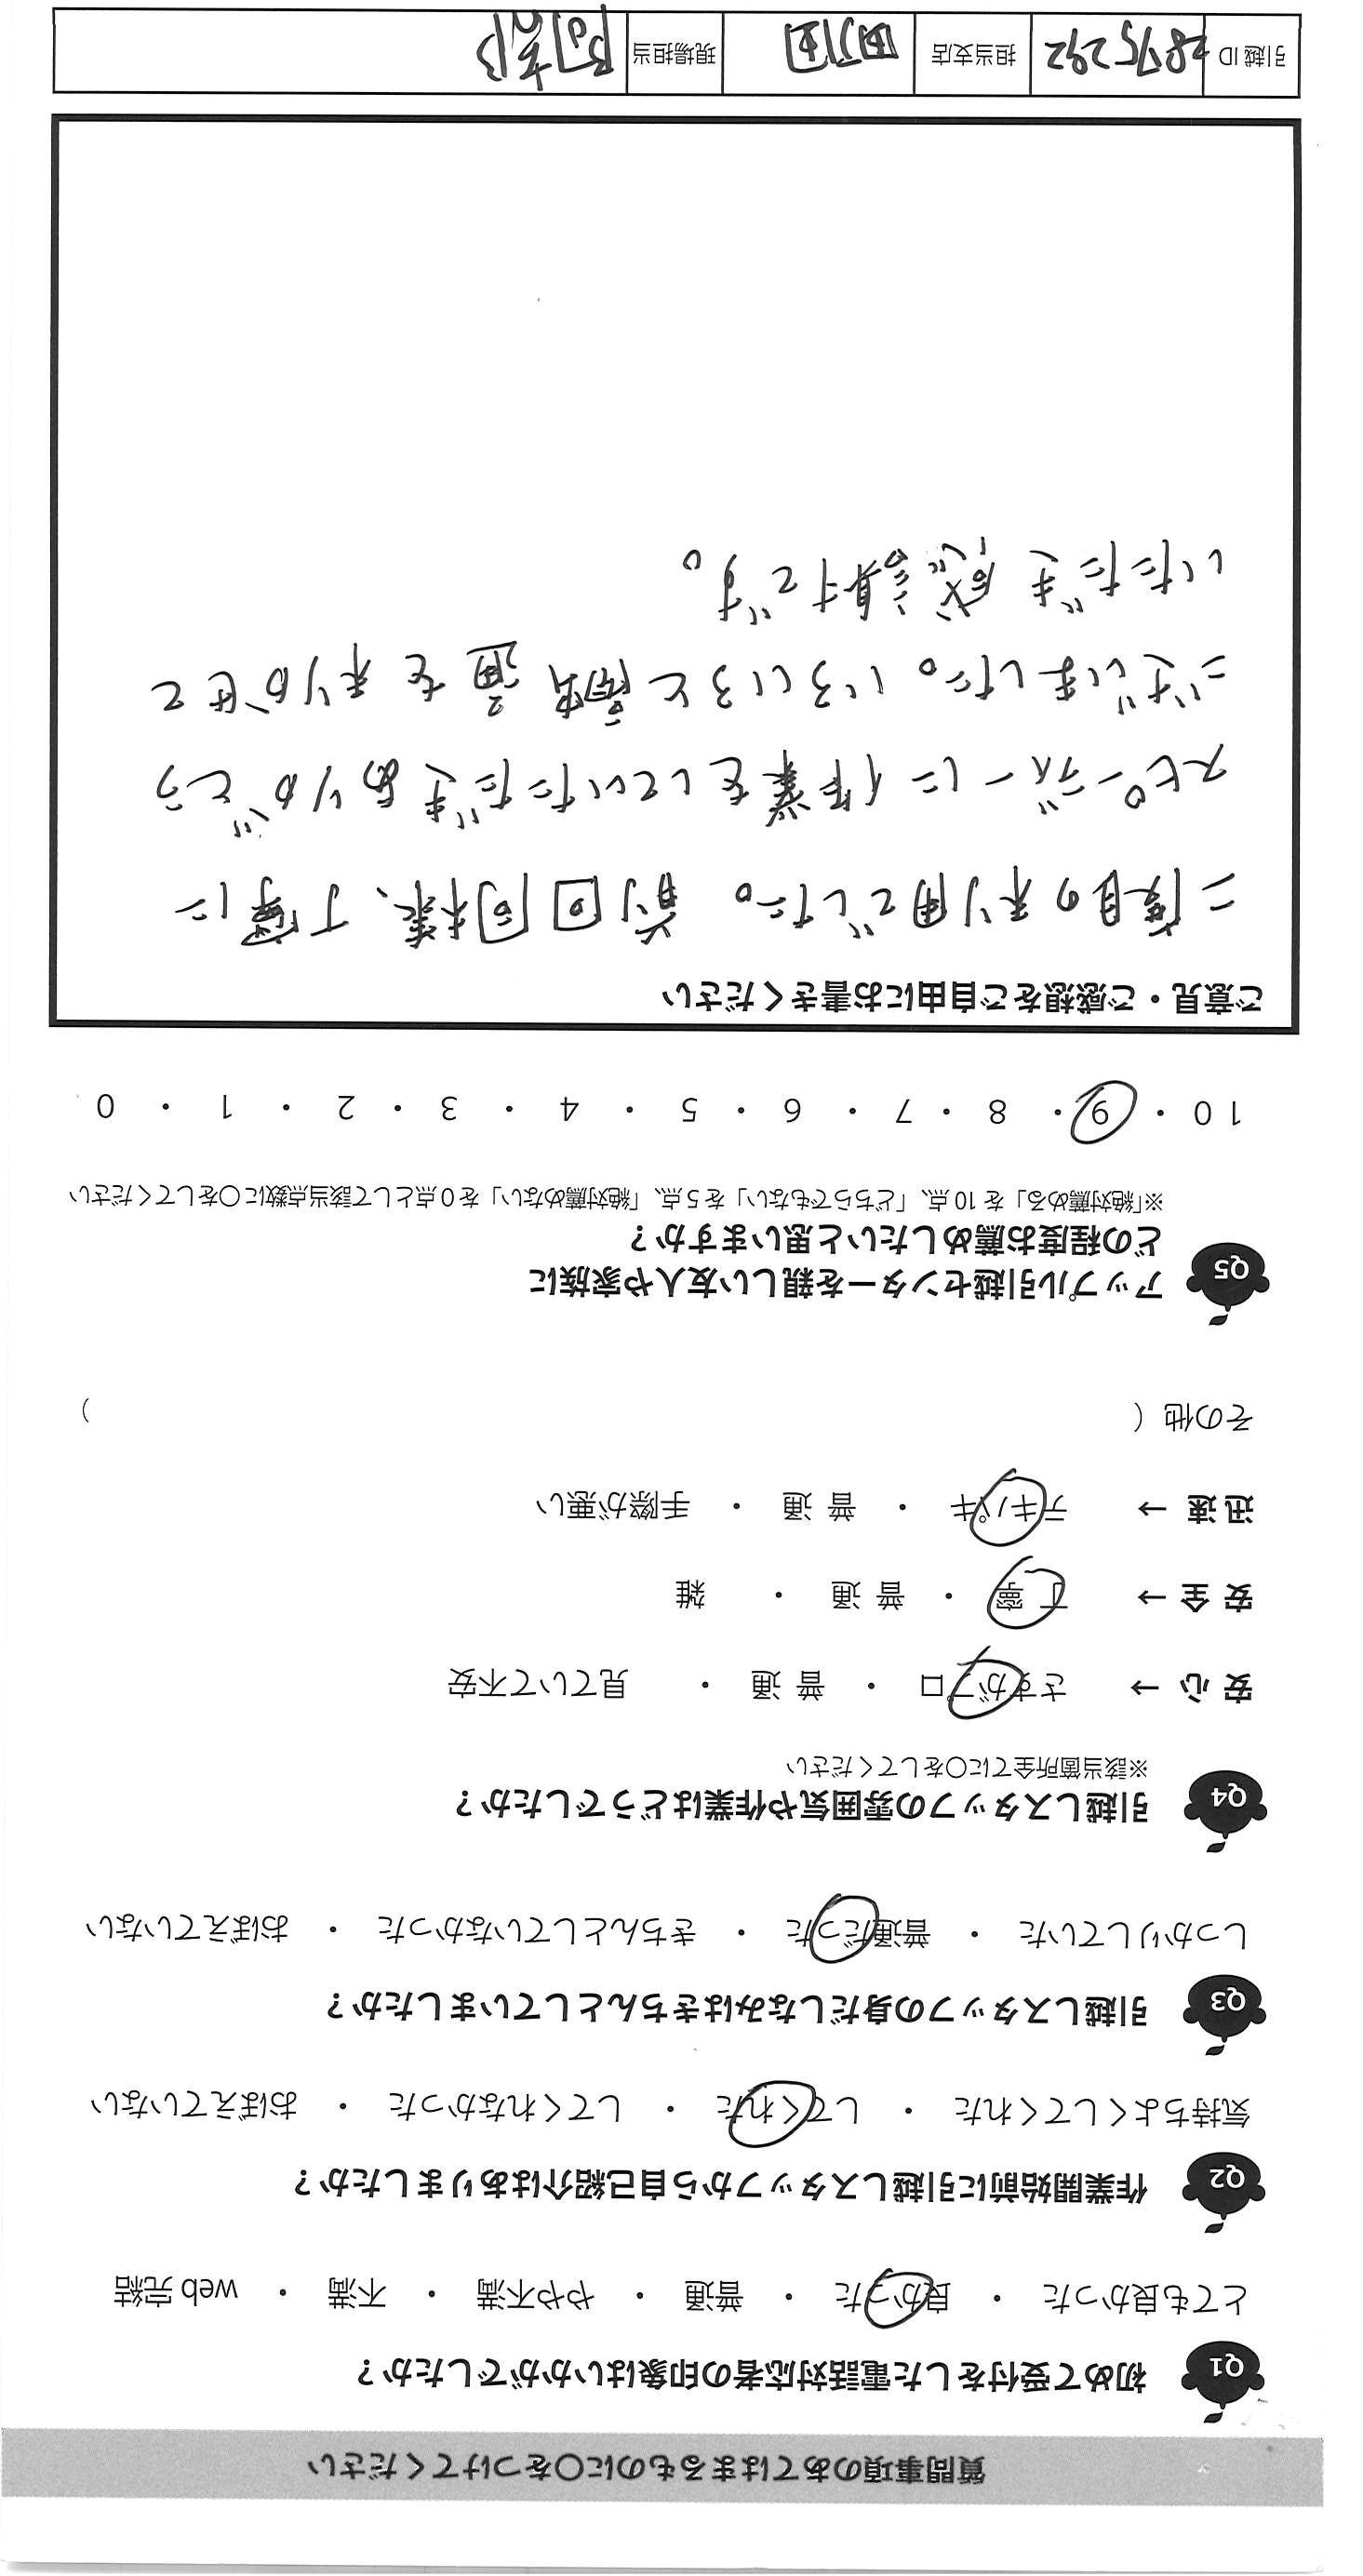 質問事項のあてはまるものに〇をつけてください
Q1 初めて受付をした電話対応者の印象はいかがでしたか？
とても良かった ・ 良かった ・ 普通 ・ やや不満 ・ 不満 ・ web 完結
Q2 作業開始前に引越しスタッフから自己紹介はありましたか？
気持ちよくしてくれた ・ してくれた ・ してくれなかった ・ おぼえていない
Q3 引越しスタッフの身だしなみはきちんとしていましたか？
しっかりしていた ・ 普通だった ・ きちんとしていなかった ・ おぼえていない
Q4 引越しスタッフの雰囲気や作業はどうでしたか？
※該当箇所全てに〇をしてください
安 心 → さすがプロ ・ 普 通 ・ 見ていて不安
安 全 → 丁 寧 ・ 普 通 ・ 雑
迅 速 → テキパキ ・ 普 通 ・ 手際が悪い
その他（ ）
Q5 アップル引越センターを親しい友人や家族に
どの程度お薦めしたいと思いますか？
※「絶対薦める」を 10 点、「どちらでもない」を 5 点、「絶対薦めない」を 0 点として該当点数に〇をしてください
10 ・ 9 ・ 8 ・ 7 ・ 6 ・ 5 ・ 4 ・ 3 ・ 2 ・ 1 ・ 0
ご意見・ご感想をご自由にお書きください
二度目の利用でした。前回同様、丁寧に
スピーディーに作業をしていただきありがとう
ございました。いろいろと融通を利かせて
いただき感謝です。
引越 ID 2875292 担当支店 町田 現場担当 阿部